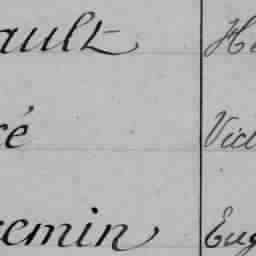 ault He
ré Vict
emin Eug